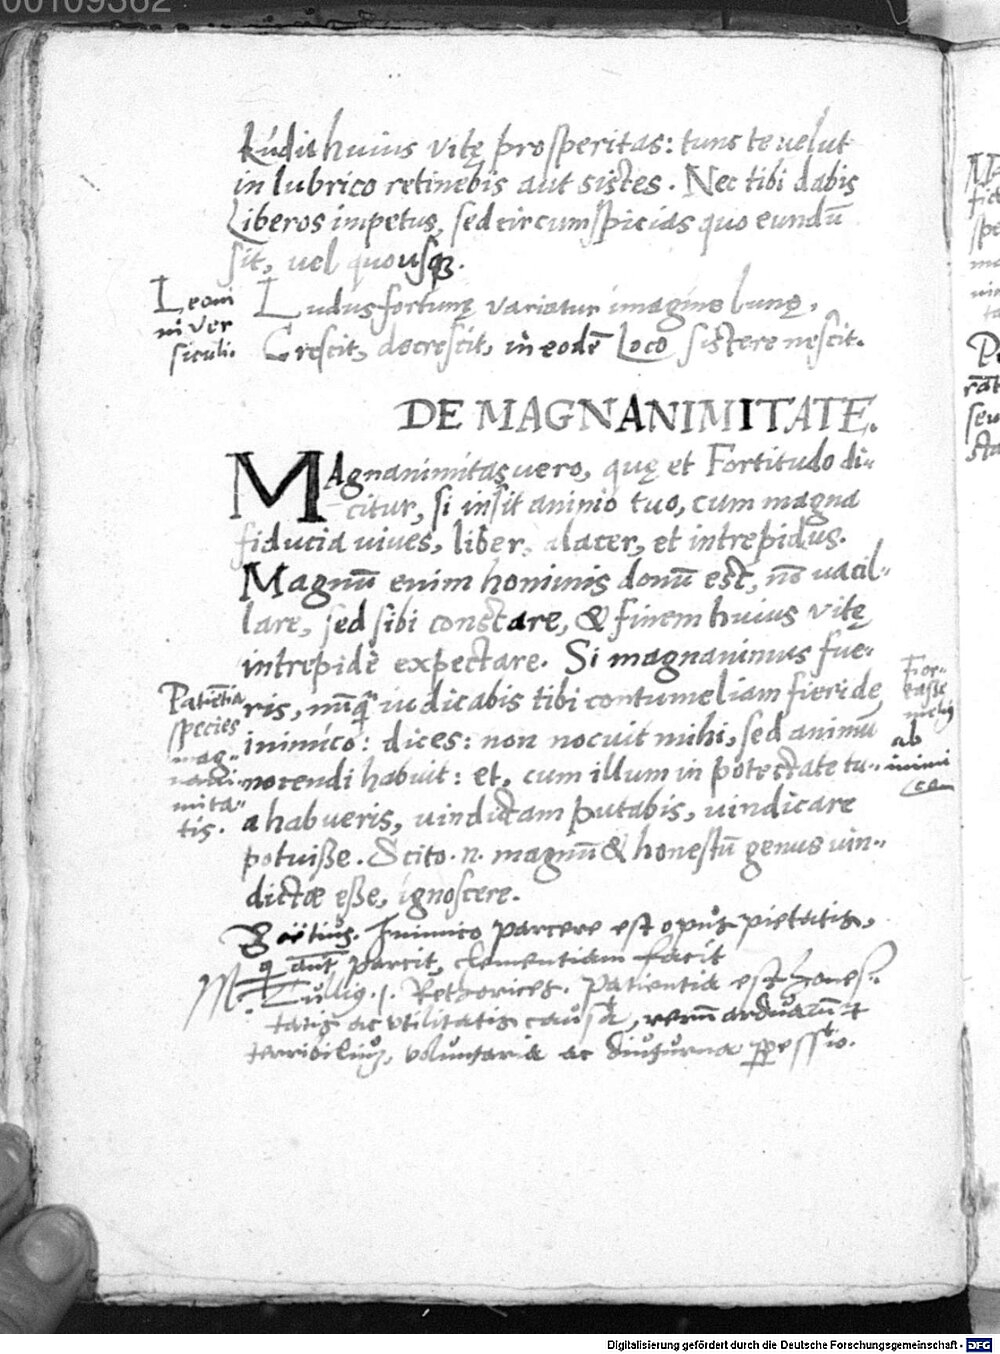 00109362
huius vitę prosperitas: tunc te uelut
in lubrico retinebis aut sistes. Nec tibi dabis
Liberos impetus, sed circumspicias quo eundū
sit, uel quousqꝫ.
Leoni
ni ver
siculi.
Ludus fortunę variatur imagine lunę,
Crescit, decrescit, in eodē Loco sistere nescit.
DE MAGNANIMITATE.
MAgnanimitas uero, quę et Fortitudo di-
citur, si insit animo tuo, cum magna
fiducia uiues, liber, alacer, et intrepidus.
Magnū enim hominis donū est, nō uacil-
lare, sed sibi constare, & finem huius vitę
intrepidè expectare. Si magnanimus fue-
ris, nunq̄ iudicabis tibi contumeliam fieri de
inimico: dices: non nocuit mihi, sed animū
nocendi habuit: et, cum illum in potestate tu-
a habueris, uindictam putabis, uindicare
potuiße. Scito .n. magnū & honestū genus uin-
dictæ eße, ignoscere.
Patiētia
species
mag-
nani-
mita-
tis.
ab
inimi
co
Boëtius. Inimico parcere est opus pietatis,
q̄ aut parcit, clementiam facit
M. Tullius .1. Rethorices. Patientia est hones-
tatis ac vtilitatis causa, rerū arduarū
terribiliū, voluntaria ac diuturna ꝑpessio.
Digitalisierung gefördert durch die Deutsche Forschungsgemeinschaft - DFG